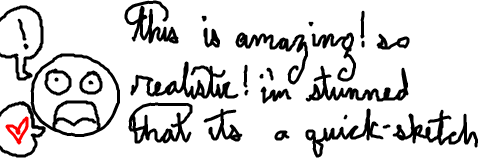 !
This is amazing! so
realistic! i'm stunned
that its a quick-sketch